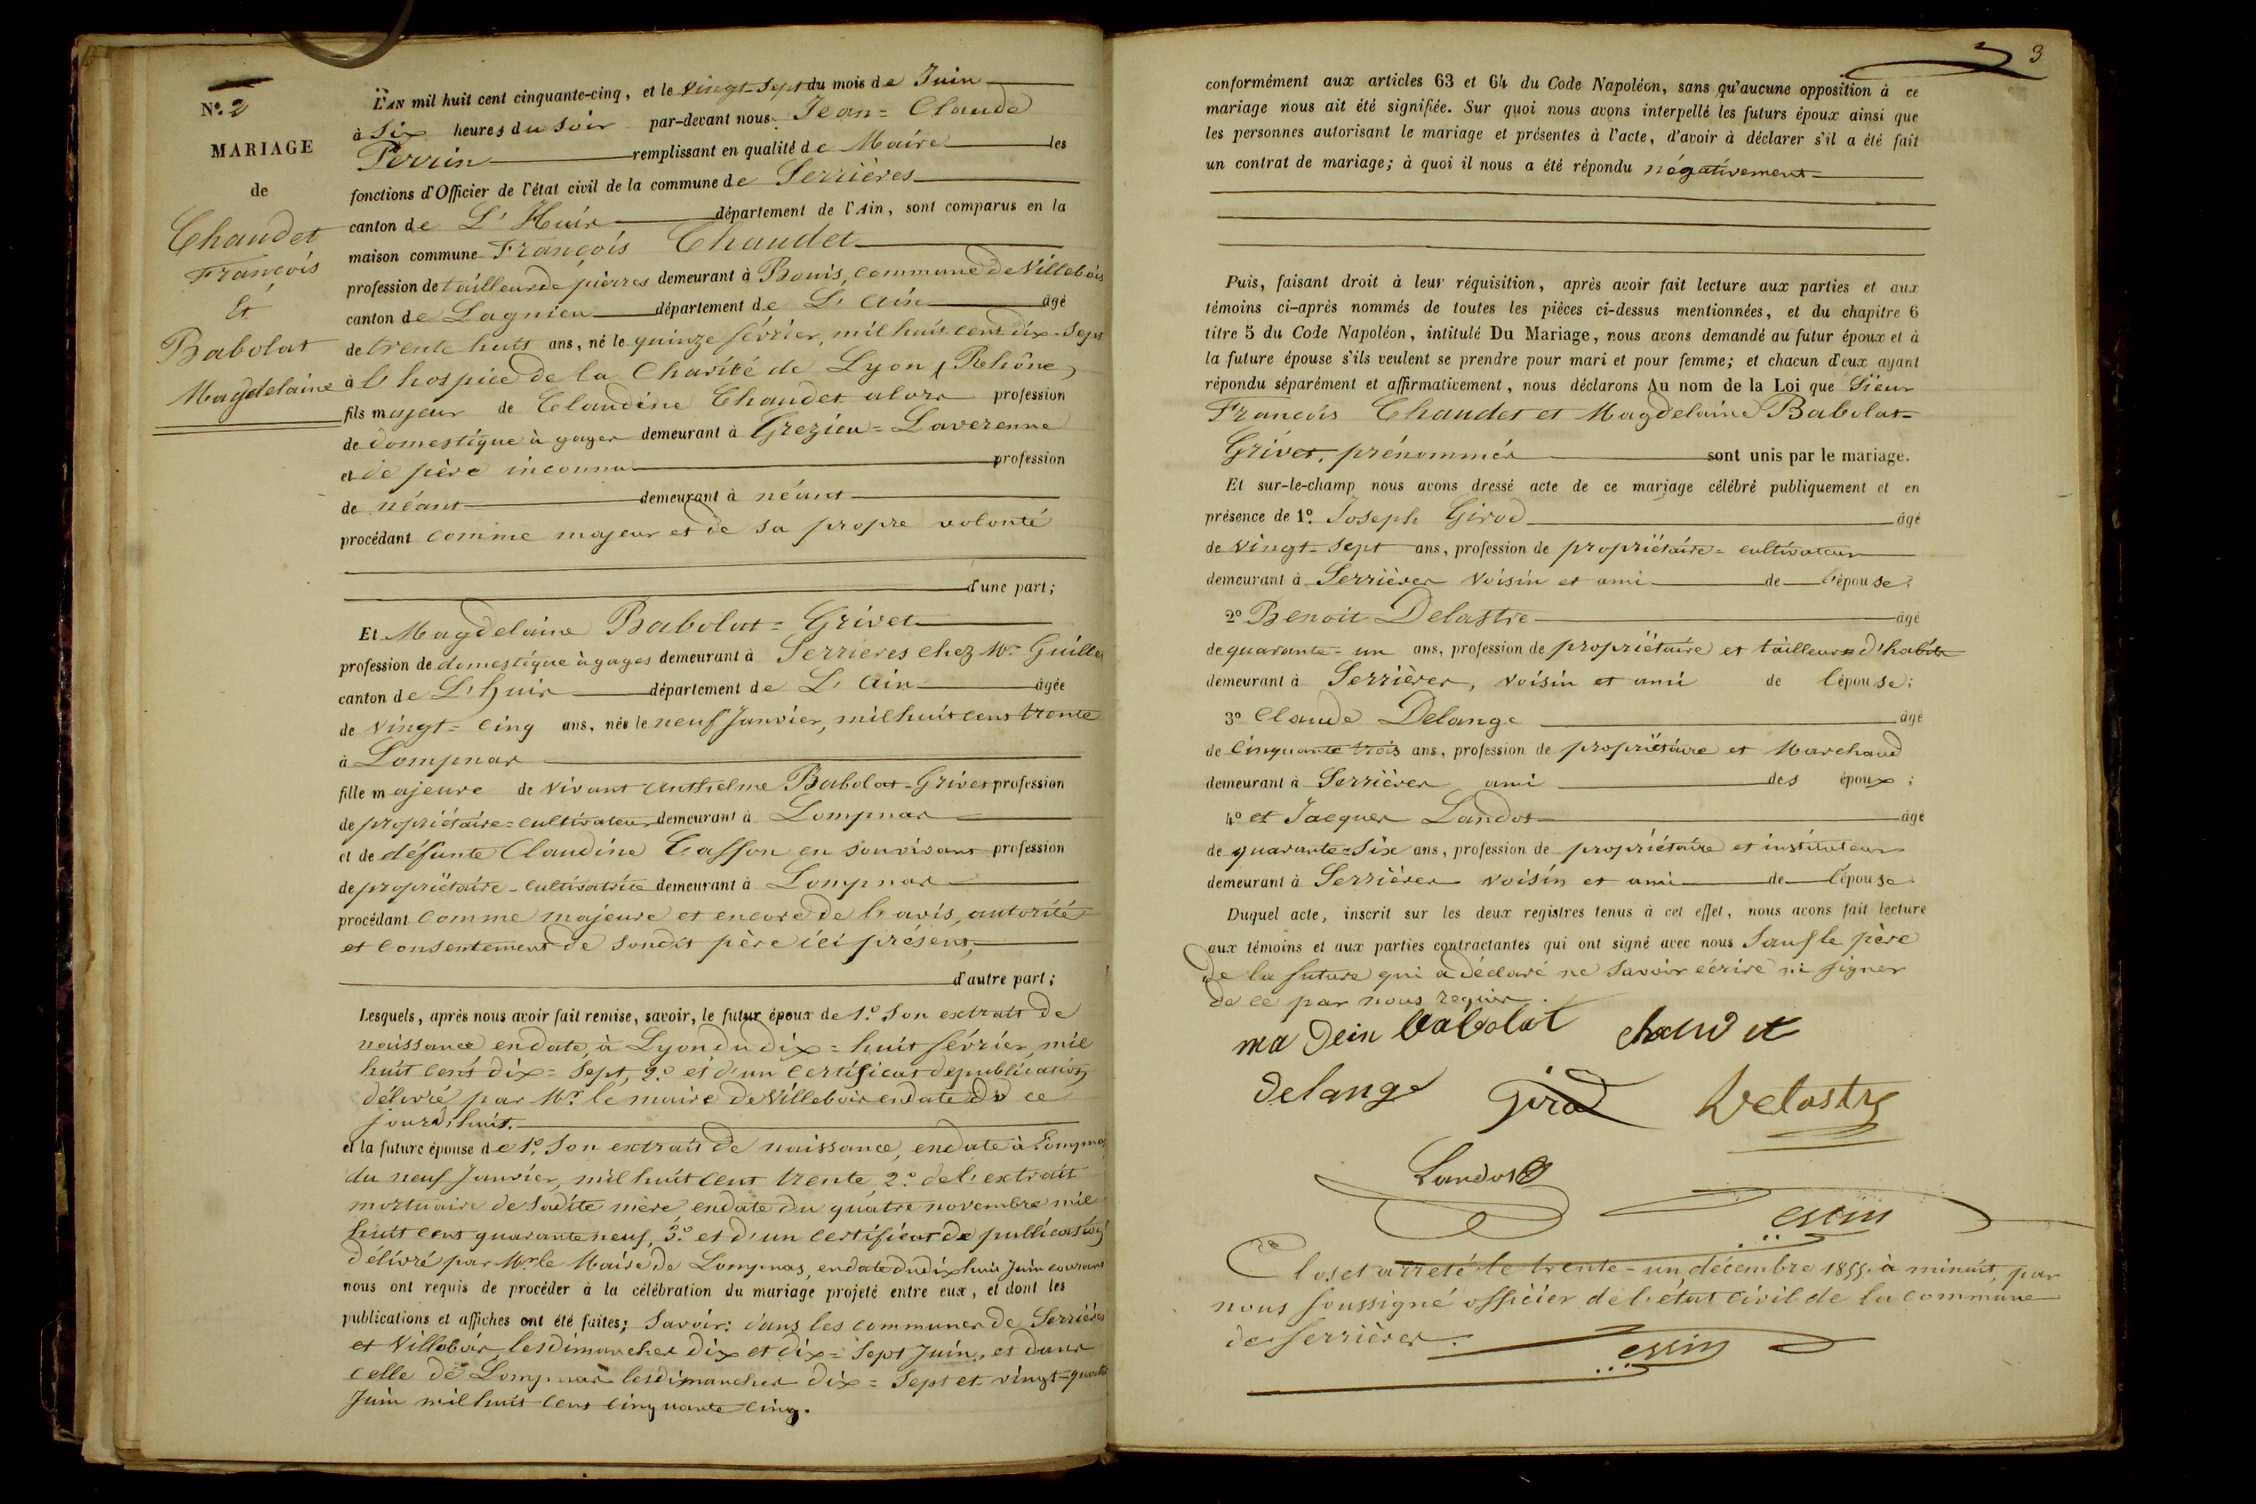 N.o 2
MARIAGE
de
Chaudet
François
Et
Babolat
Magdelaine
L'AN mil huit cent cinquante-cinq, et le vingt-sept du mois de Juin
à Six heures du soir par-devant nous Jean-Claude
Perrin remplissant en qualité de Maire les
fonctions d'Officier de l'état civil de la commune de Serrières
canton de L'Huis département de l'Ain, sont comparus en la
maison commune François Chaudet
profession de tailleur de pierres demeurant à Bouis, commune de Villebois
canton de Lagnieu département de L'Ain âgé
de trente huit ans, né le quinze février, mil huit cent dix-sept
à l'hospice de la Charité de Lyon (Rhône)
fils majeur de Claudine Chaudet alors profession
de domestique à gages demeurant à Grezieu-Laverenne
et de père inconnu profession
de néant demeurant à néant
procédant comme majeur et de sa propre volonté
d'une part;
Et Magdelaine Babolat-Grivet
profession de domestique à gages demeurant à Serrières chez Mr Guillet
canton de L'huis département de L'Ain âgée
de vingt-cinq ans, née le neuf Janvier, mil huit cent trente
à Lompnas
fille majeure de vivant Anthelme Babolat-Grivet profession
de propriétaire-cultivateur demeurant à Lompnas
et de défunte Claudine Casson en son vivant profession
de propriétaire-cultivatrice demeurant à Lompnas
procédant comme majeure et encore de l'avis, autorité
et consentement de sondit père ici présent,
d'autre part;
Lesquels, après nous avoir fait remise, savoir, le futur époux de 1.o Son extrait de
naissance en date, à Lyon du dix-huit février, mil
huit cent dix-sept, 2.o et d'un certificat de publication
délivré par Mr le maire de Villebois en date du ce
jourd'hui.
et la future épouse de 1o Son extrait de naissance, en date à Lompnas
du neuf Janvier, mil huit cent trente, 2.o de l'extrait
mortuaire de sadite mère, en date du quatre novembre mil
huit cent quarante neuf, 3.o et d'un certificat de publication
délivré par Mr le Maire de Lompnas, en date du dix huit Juin courant
nous ont requis de procéder à la célébration du mariage projeté entre eux, et dont les
publications et affiches ont été faites; Savoir: dans les communes de Serrières
et Villebois, les dimanches dix et dix-sept Juin, et dans
celle de Lompnas les dimanches dix-sept et vingt-quatre
Juin mil huit cent cinquante cinq.
3
conformément aux articles 63 et 64 du Code Napoléon, sans qu'aucune opposition à ce
mariage nous ait été signifiée. Sur quoi nous avons interpellé les futurs époux ainsi que
les personnes autorisant le mariage et présentes à l'acte, d'avoir à déclarer s'il a été fait
un contrat de mariage; à quoi il nous a été répondu négativement
Puis, faisant droit à leur réquisition, après avoir fait lecture aux parties et aux
témoins ci-après nommés de toutes les pièces ci-dessus mentionnées, et du chapitre 6
titre 5 du Code Napoléon, intitulé Du Mariage, nous avons demandé au futur époux et à
la future épouse s'ils veulent se prendre pour mari et pour femme; et chacun d'eux ayant
répondu séparément et affirmativement, nous déclarons Au nom de la Loi que Sieur
François Chaudet et Magdelaine Babolat-
Grivet, prénommés sont unis par le mariage.
Et sur-le-champ nous avons dressé acte de ce mariage célébré publiquement et en
présence de 1o. Joseph Girod âgé
de vingt-sept ans, profession de propriétaire-cultivateur
demeurant à Serrières voisin et ami de l'épouse;
2o Benoit Delastre âgé
de quarante-un ans, profession de propriétaire et tailleur d'habits
demeurant à Serrières, voisin et ami de l'épouse;
3o Claude Delange âgé
de cinquante trois ans, profession de propriétaire et Marchand
demeurant à Serrières ami des époux;
4o et Jacques Landot âgé
de quarante-six ans, profession de propriétaire et instituteur
demeurant à Serrières voisin et ami de l'épouse.
Duquel acte, inscrit sur les deux registres tenus à cet effet, nous avons fait lecture
aux témoins et aux parties contractantes qui ont signé avec nous Sauf le père
de la future qui a déclaré ne savoir écrire ni signer
de ce par nous requis.
ma dein babolat chaudet
delange Girod Delastre
Landot
Perrin
Clos et arreté le trente-un décembre 1855 à minuit, par
nous soussigné officier de l'état civil de la commune
de Serrières.
Perrin